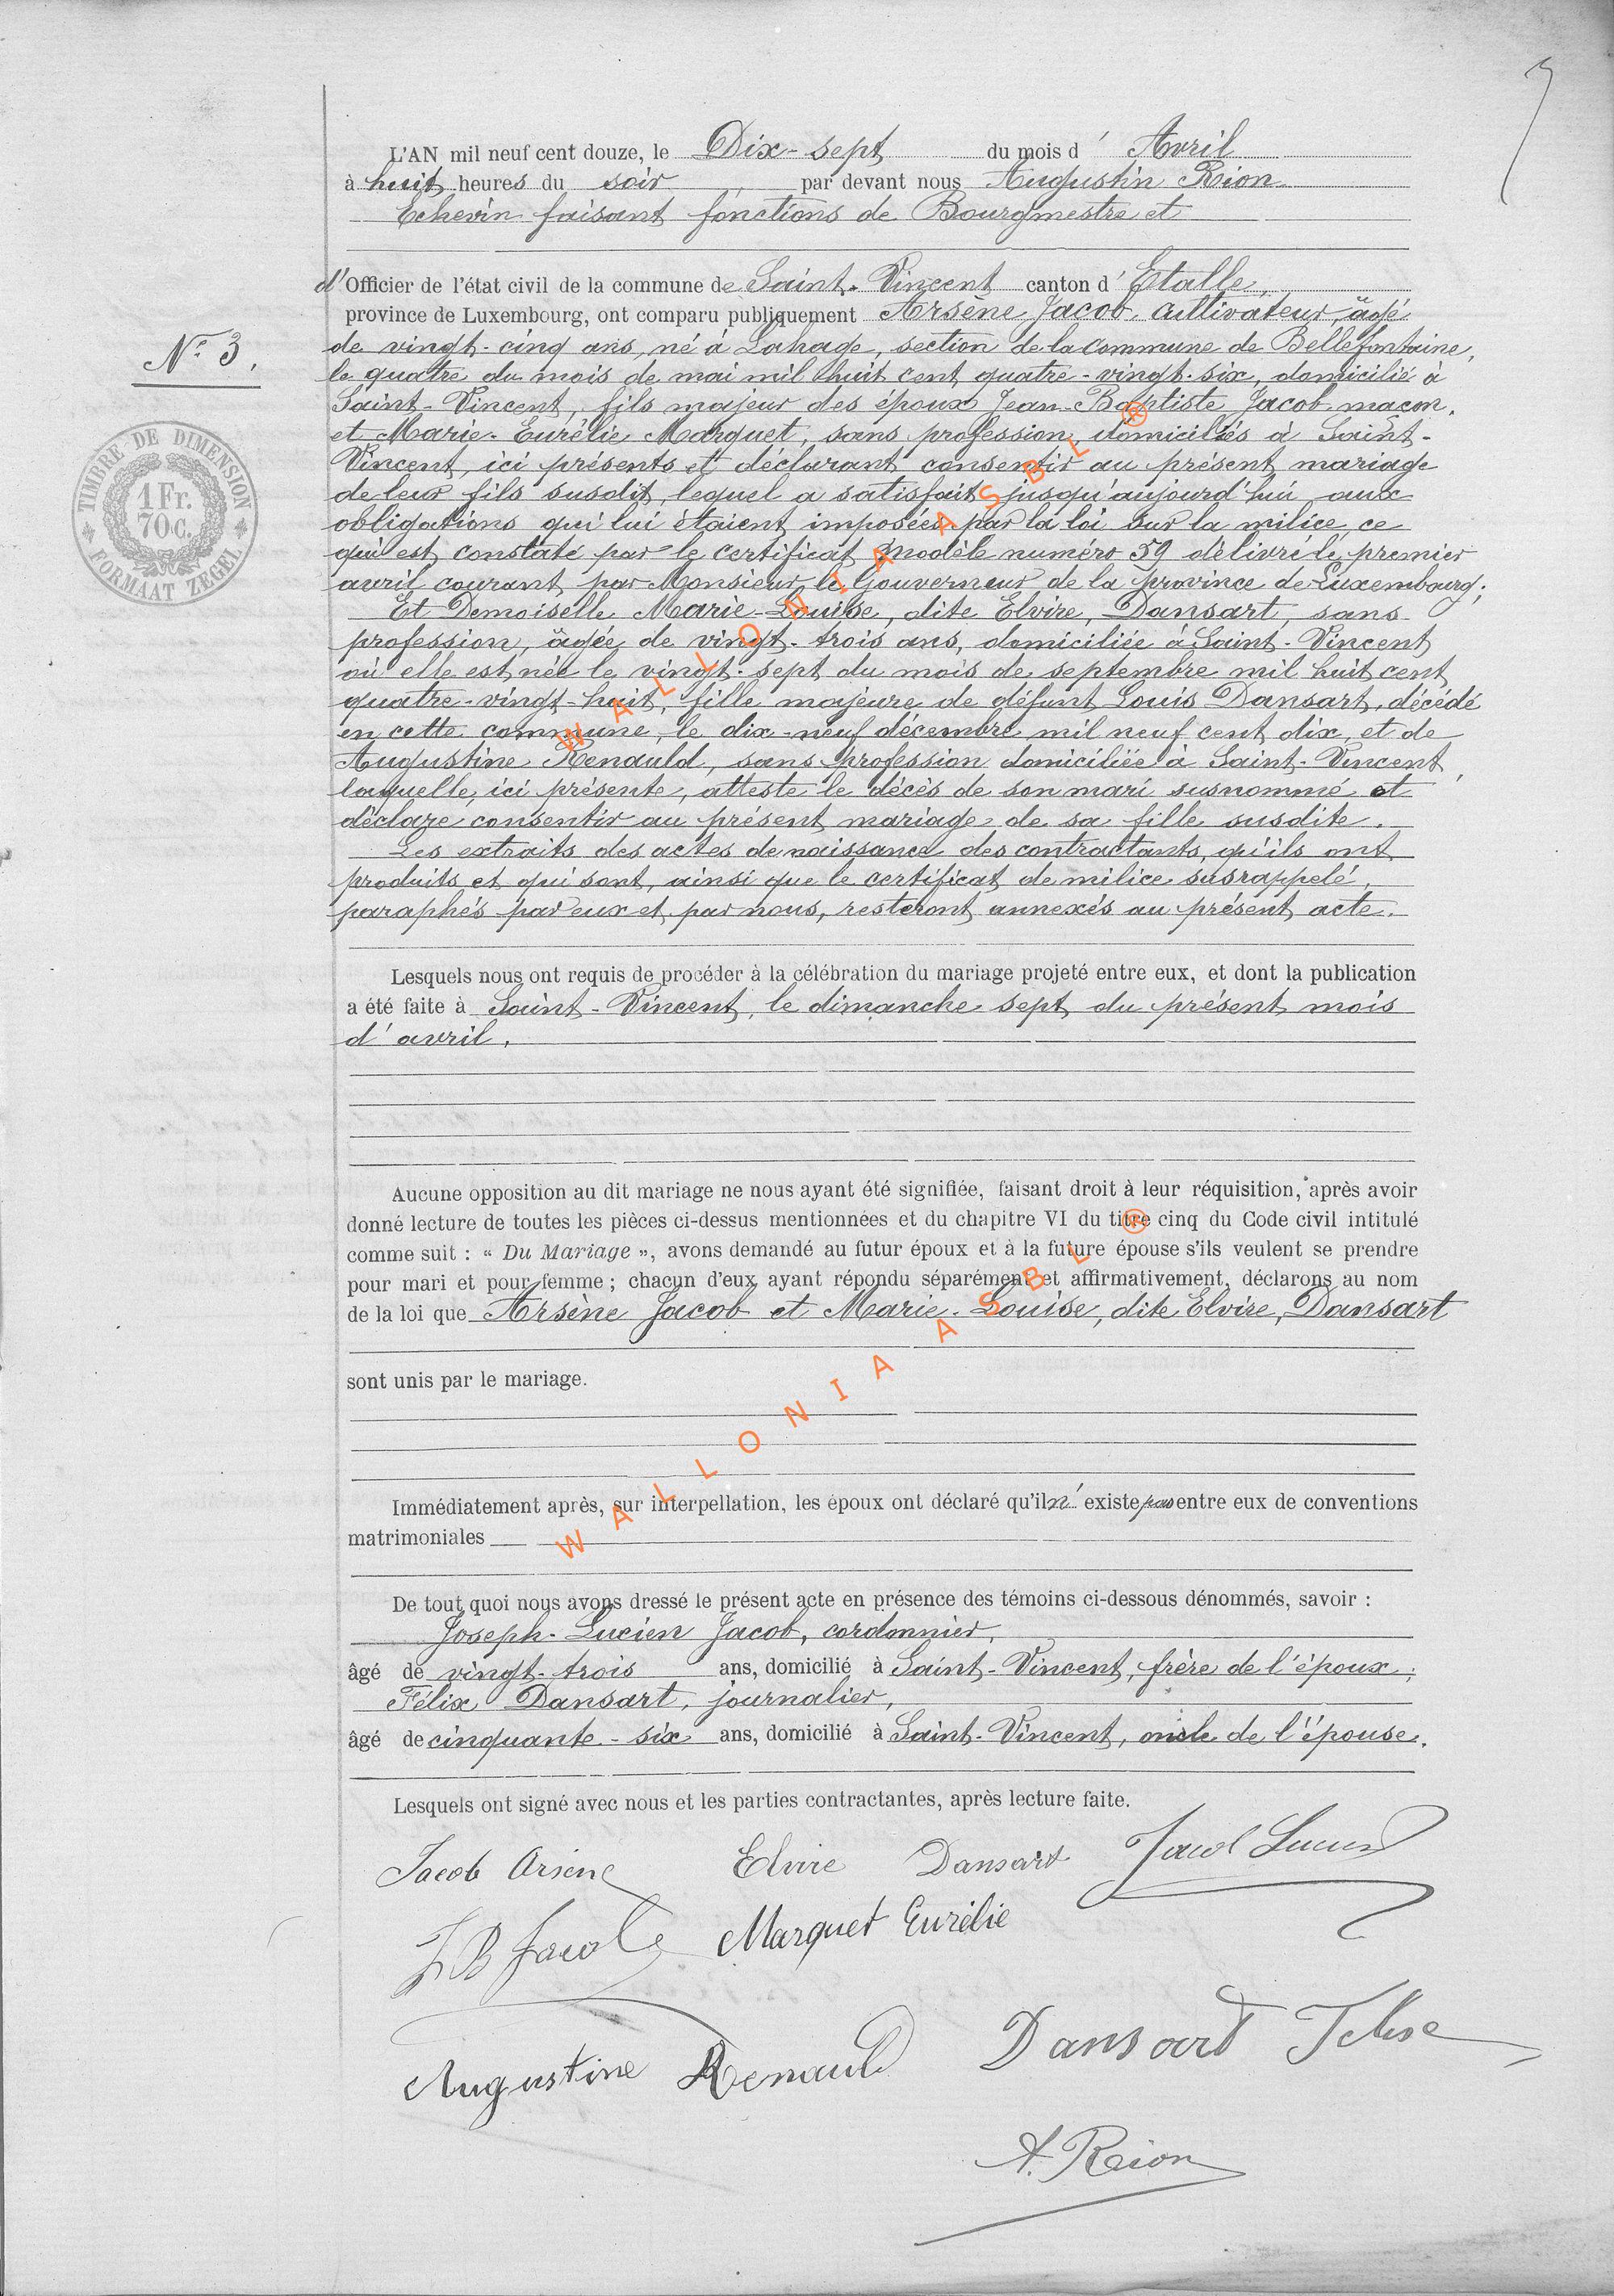 L'AN mil neuf cent douze, le Dix-sept du mois d' Avril
à huit heures du soir, par devant nous Augustin Rion
Echevin faisant fonctions de Bourgmestre et
d'Officier de l'état civil de la commune de Saint-Vincent canton d'Etalle,
province de Luxembourg, ont comparu publiquement Arsène Jacob, cultivateur âgé
N° 3.
de vingt-cinq ans, né à Lahage, section de la commune de Bellefontaine,
le quatre du mois de mai mil huit cent quatre-vingt-six, domicilié à
Saint-Vincent, fils majeur des époux Jean-Baptiste Jacob maçon,
et Marie-Eurélie Marquet, sans profession, domiciliés à Saint-
Vincent, ici présents et déclarant consentir au présent mariage
de leur fils susdit, lequel a satisfait jusqu'aujourd'hui aux
obligations qui lui étaient imposées par la loi sur la milice, ce
qui est constaté par le certificat modèle numéro 59 délivré le premier
avril courant par Monsieur le Gouverneur de la province de Luxembourg;
TIMBRE DE DIMENSION
1 Fr.
70 c.
FORMAAT ZEGEL
Et Demoiselle Marie-Louise, dite Elvire, Dansart, sans
profession, âgée de vingt-trois ans, domiciliée à Saint-Vincent
où elle est née le vingt-sept du mois de septembre mil huit cent
quatre-vingt-huit, fille majeure de défunt Louis Dansart, décédé
en cette commune, le dix-neuf décembre mil neuf cent dix, et de
Augustine Renauld, sans profession domiciliée à Saint-Vincent,
laquelle, ici présente, atteste le décès de son mari susnommé et
déclare consentir au présent mariage de sa fille susdite.
Les extraits des actes de naissance des contractants, qu'ils ont
produits et qui sont, ainsi que le certificat de milice susrappelé,
paraphés par eux et par nous, resteront annexés au présent acte.
Lesquels nous ont requis de procéder à la célébration du mariage projeté entre eux, et dont la publication
a été faite à Saint-Vincent, le dimanche sept du présent mois
d'avril.
Aucune opposition au dit mariage ne nous ayant été signifiée, faisant droit à leur réquisition, après avoir
donné lecture de toutes les pièces ci-dessus mentionnées et du chapitre VI du titre cinq du Code civil intitulé
comme suit : « Du Mariage », avons demandé au futur époux et à la future épouse s'ils veulent se prendre
pour mari et pour femme ; chacun d'eux ayant répondu séparément et affirmativement, déclarons au nom
de la loi que Arsène Jacob et Marie-Louise, dite Elvire, Dansart
sont unis par le mariage.
Immédiatement après, sur interpellation, les époux ont déclaré qu'il n'existe pas entre eux de conventions
matrimoniales
De tout quoi nous avons dressé le présent acte en présence des témoins ci-dessous dénommés, savoir :
Joseph-Lucien Jacob, cordonnier,
âgé de vingt-trois ans, domicilié à Saint-Vincent, frère de l'époux;
Félix Dansart, journalier,
âgé de cinquante-six ans, domicilié à Saint-Vincent, oncle de l'épouse.
Lesquels ont signé avec nous et les parties contractantes, après lecture faite.
Jacob Arsène Elvire Dansart Jacob Lucien
J B Jacob Marquet Eurélie
Augustine Renauld Dansart
A. Rion
WALLONIA ASBL ®
WALLONIA ASBL ®